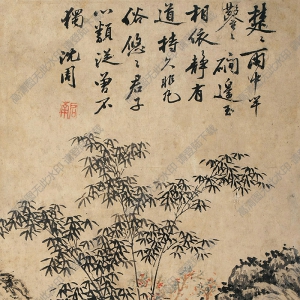 楚楚雨中竿
鬱鬱磵邊玉
相依靜有
道持久非凡
俗悠悠君子
心類從曾不
獨 沈周